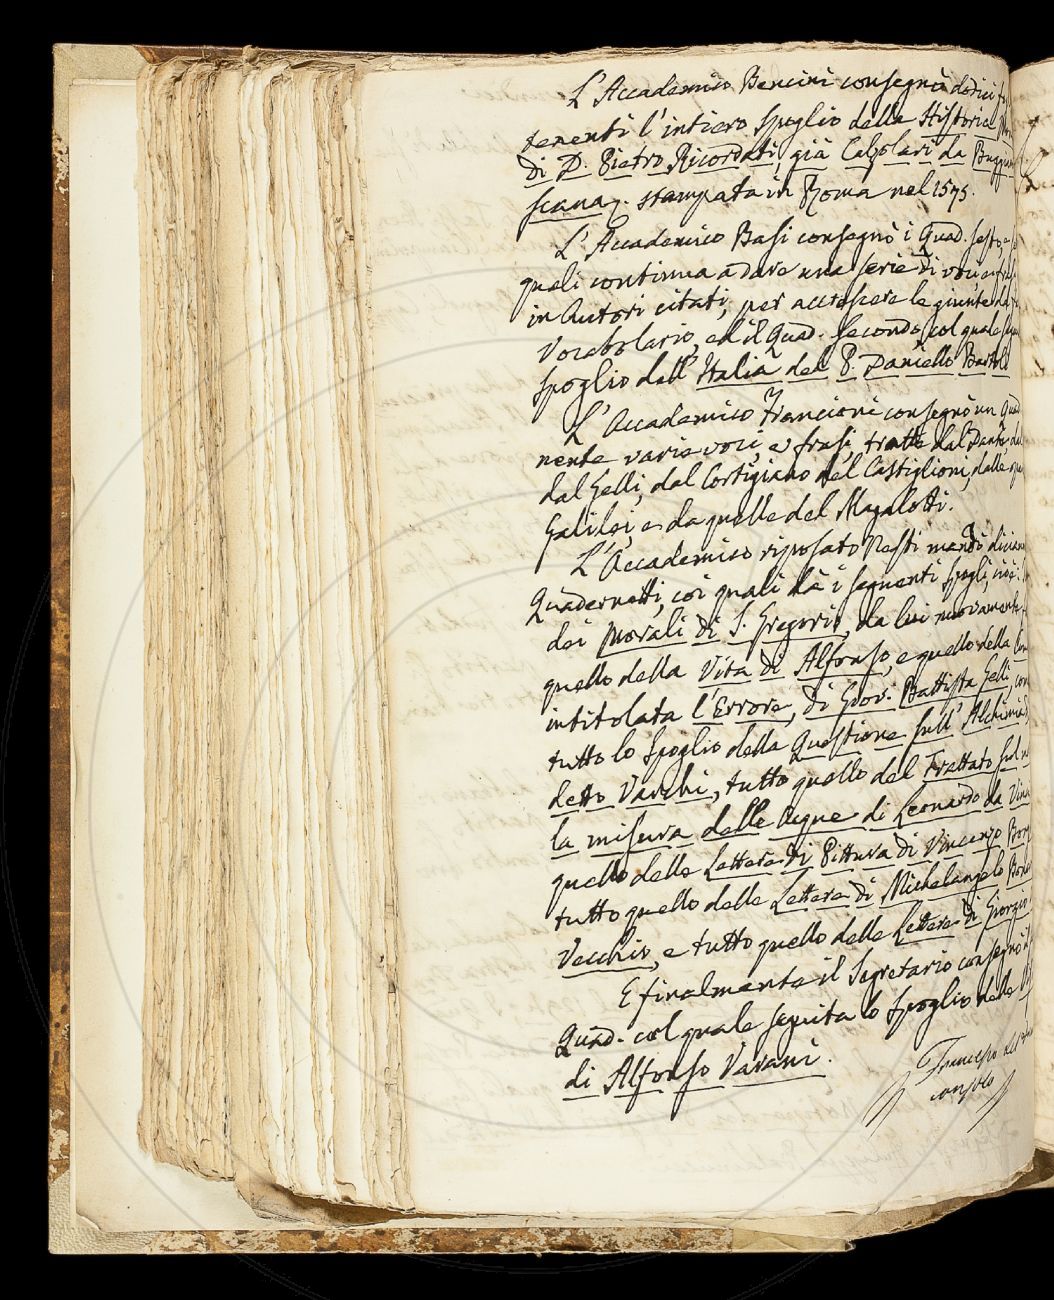 L'Accademico Bencini consegnò dodici
tenenti l'intiero spoglio delle Historie
di D. Pietro Ricordati, già Calzolari da
scana &. stampata in Roma nel 1575.
L'Accademico Basi consegnò i Quad. sesto, e
quali continua a dare una serie di voci, e
in Autori citati, per accrescere le giunte da
Vocabolario, ed il Quad. secondo, col quale
spoglio dell'Italia del P. Daniello Bartoli
L'Accademico Francioni consegnò un Quad
nente varie voci, e frasi, tratte dal Dante, dal
dal Gelli, dal Cortigiano del Castiglioni, dalle
Galilei, e da quelle del Magalotti.
L'Accademico riposato Nesti mandò
Quadernetti, coi quali dà i seguenti spogli, cioè:
dei Morali di S. Gregorio, da lui nuovamente
quello della Vita di Alfonso, e quello della
intitolata l'Errore, di Giov: Battista Gelli,
tutto lo spoglio della Questione sull'Alchimia
detto Varchi, tutto quello del Trattato sul
la misura delle Acque di Leonardo da Vinci
quello delle Lettere di Pittura di Vincenzo
tutto quello delle Lettere di Michelangelo
Vecchio, e tutto quello delle Lettere di Giorgio
E finalmente il Segretario consegnò
Quad. col quale seguita lo spoglio delle
di Alfonso Varani.
Francesco del
consolo